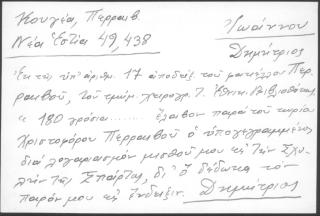 Κουγέα, Περραιβ.
Νέα Ἑστία 49, 438
Ἰωάννου
Δημήτριος
Ἐκ τῆς ὑπ' ἀριθμ. 17 ἀποδείξ. τοῦ ματιέλλου Περ-
ραιβοῦ, τοῦ τμήμ. χειρογρ. τ. Ἐθνικ. Βιβλιοθήκης
« 180 γρόσια........ ἔλαβον παρὰ τοῦ κυρίου
Χριστοφόρου Περραιβοῦ ὁ ὑπογεγραμμένος
διὰ λογαριασμὸν μισθοῦ μου εἰς τὴν Σχο-
λὴν τῆς Σπάρτης, δι' ὃ δίδωται τὸ
παρόν μου εἰς ἔνδειξιν. Δημήτριος